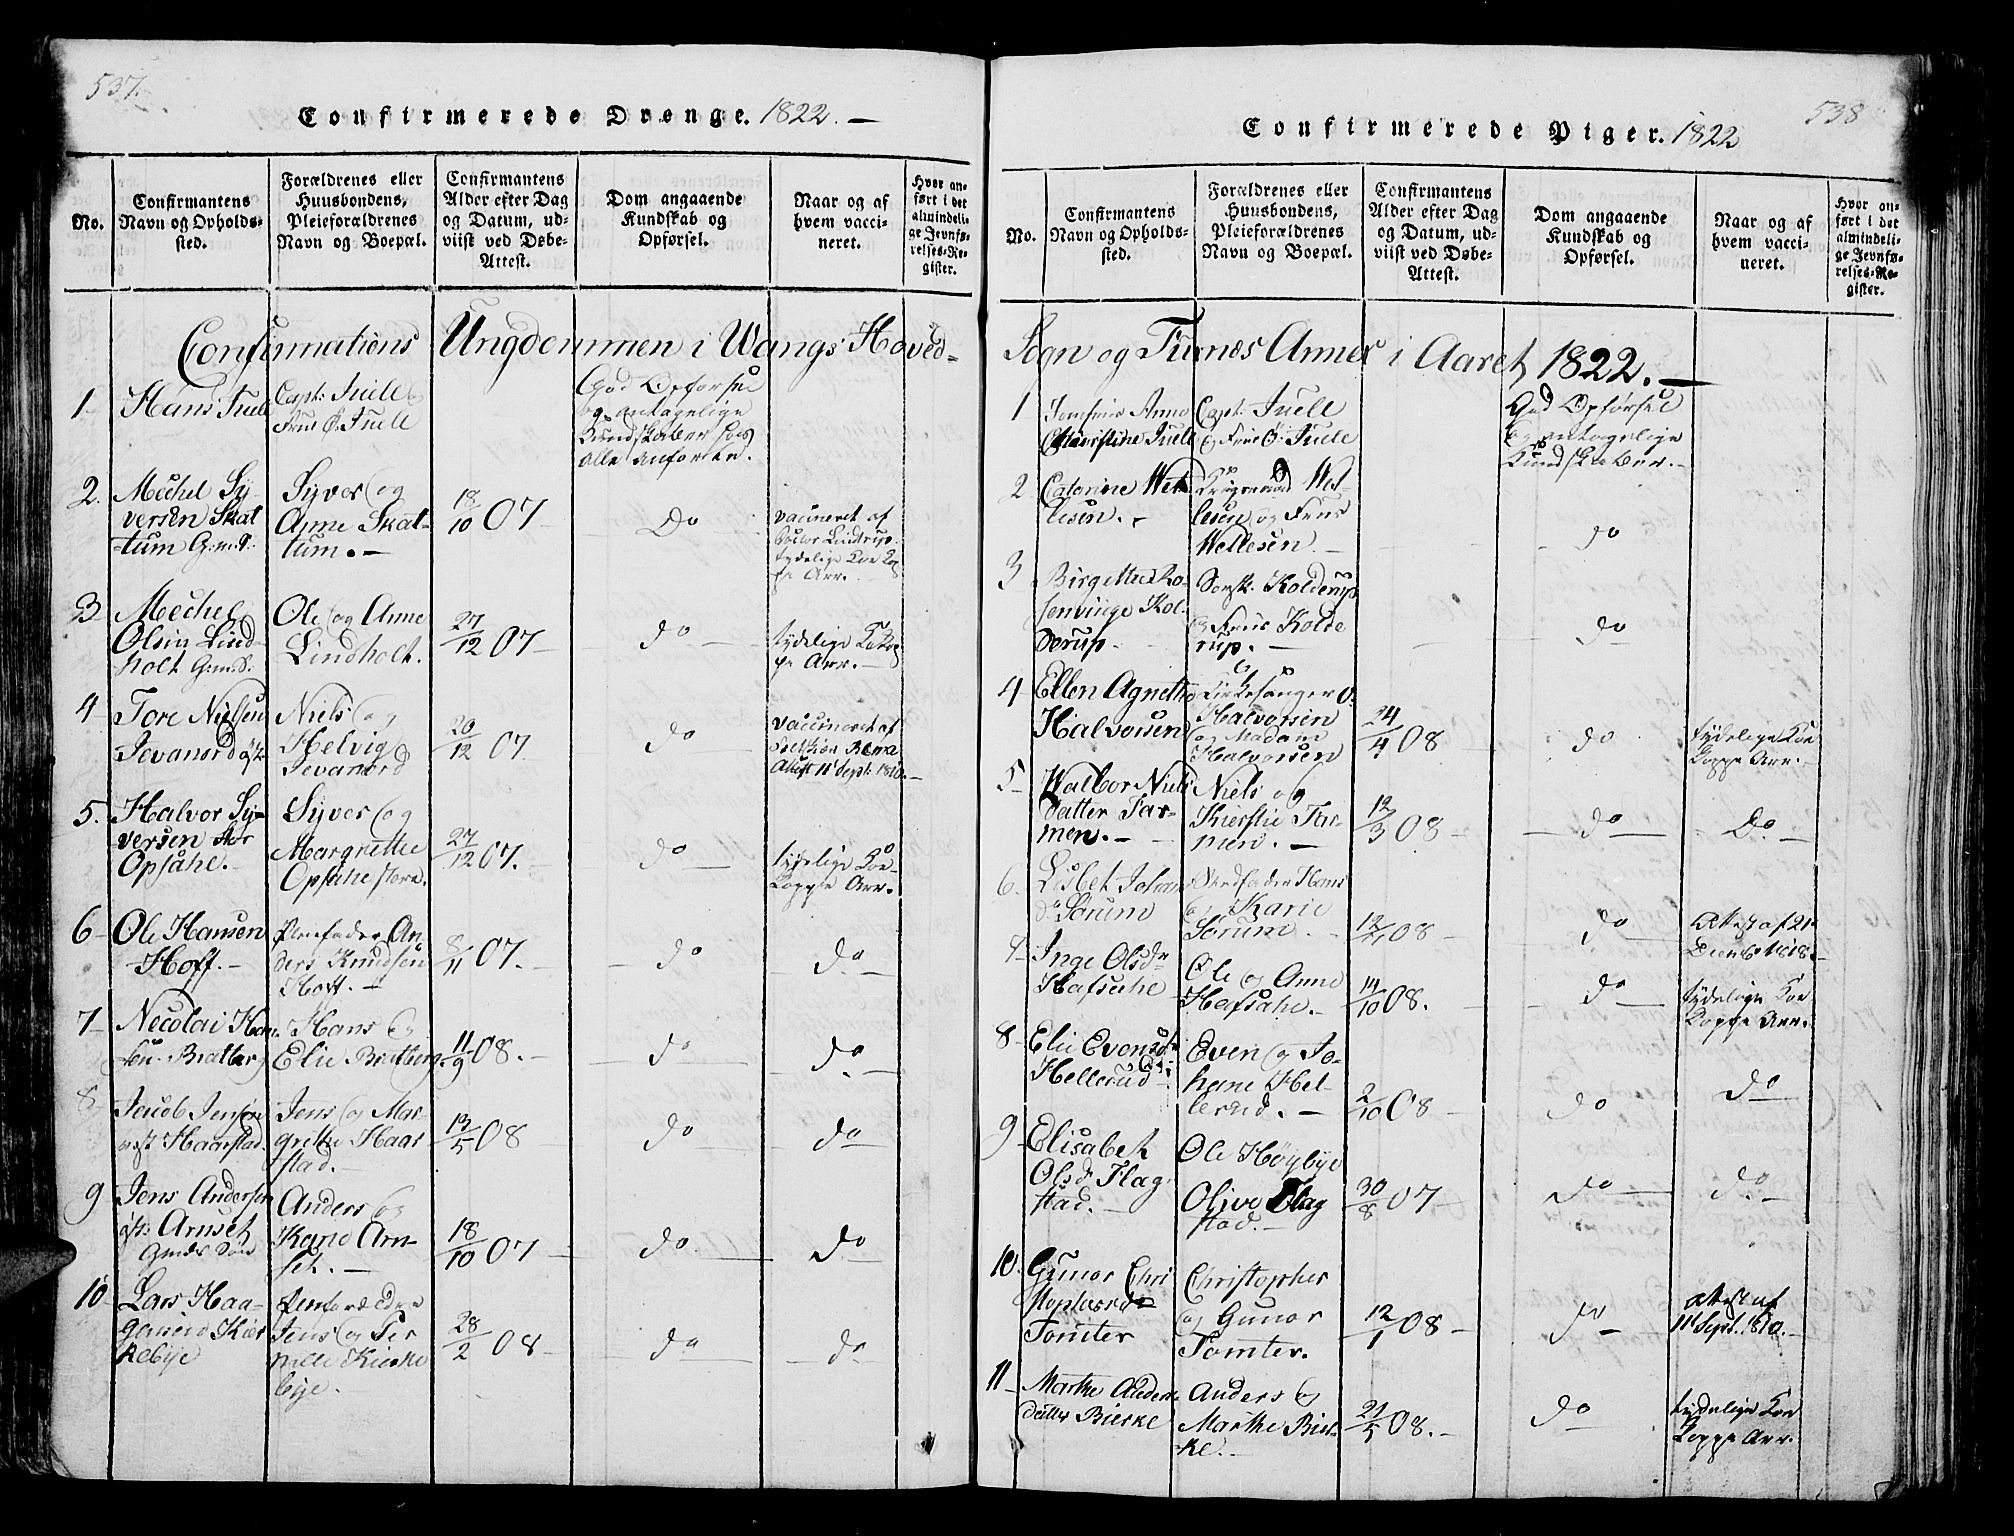 537.
Confirmerede Drenge. 1822. —
No.
Confirmantens Navn og Opholds-sted.
Forældrenes eller Huusbondens, Pleieforældrenes Navn og Boepæl.
Confirmantens Alder efter Dag og Datum, ud-viist ved Døbe-Attest.
Dom angaaende Kundskab og Opførsel.
Naar og af hvem vacci-neret.
Hvor an-ført i det almindeli-ge Jevnfø-relses-Re-gister.
Confirmations Ungdommen i Wangs Hoved-
1 Hans Juell
Capt. Juell &
Frue Ø. Juell
God Opførsel
og antagelige
Kundskaber hos
alle anførte.
2. Mechel Sy-
versen Skat
tum G.m.S.
Syver og
Anne Skat-
tum. —
18/10 07
Do
vaccineret af
Doctor
tydelige Koe Kop
pe Arr.
3 Mechel
Olsen Lind-
holt G.m.S.
Ole og Anne
Lindholt.
27/12 07
do
tydelige K. Kop
pe Arr. —
4 Tore Nielsen
Jevanord
Niels og
Helvig
Jevanord
20/12 07
do
vaccineret af
Attest 11 Sept: 1810. —
5. Halvor Sy-
versen Stor
Opsahe.
Syver og
Margrethe
Opsahe store.
27/12 07.
do
tydelige Koe-
Koppe Arr.
6 Ole Hansen
Hoff. —
Pleiefader An-
ders Knudsen
Hoff. —
8/11 07.
do
do
7 Necolai Han-
sen Bratberg
Hans og
Elie Bratberg
11/9 08.
do
do
8 Jacob Jensen
Haarstad.
Jens og Mar-
grethe Haar
stad. —
13/5 08
do
do
9 Jens Andersen
Arnset
Anders og
Kari Arn-
set. —
18/10 07
do
do
10 Lars Haa-
Kier
kebye
Pleieforældre
Jens og Per
nille Kierke
bye.
28/2 08
do
do
538
Confirmerede Piger. 1822
No.
Confirmantens Navn og Opholds-sted.
Forældrenes eller Huusbondens, Pleieforældrenes Navn og Boepæl.
Confirmantens Alder efter Dag og Datum, ud-viist ved Døbe-Attest.
Dom angaaende Kundskab og Opførsel.
Naar og af hvem vacci-neret.
Hvor an-ført i det almindeli-ge Jevnfø-relses-Re-gister.
Sogn og Furnæs Annex i Aaret 1822. —
1 Jomfrue Anne
Christine Juell
Capt. Juell
og Frue Ø: Juell
God Opførsel
og antagelige
Kundskaber. —
2 Catarine Wet
lesen. —
Krigsraad Wet-
lesen og Frue
Wetlesen. —
do
3 Birgette Ro-
senvinge Kol-
derup.
Sorsk. Kolderup
og Frue Kolde
rup. —
do
4 Ellen Agnette
Halvorsen
Kirkesanger O.
Halvorsen
og Madam
Halvorsen
24/4 08
do
tydelige Koe
Koppe Arr. —
5 Walbor Niels
datter Far-
men. —
Niels og
Kierstie Far-
men. —
12/3 08
do
Do
6. Lisbet Johans
dr Sørum
Stedfader Hans
og Karie
Sørum.
12/ 08
do
Attest af 21
Decemb 1818. —
7 Inge Olsdr
Hafsahe
Ole og Anne
Hafsahe. —
14/10 08.
do
tydelige Koe
Koppe Arr.
8 Elie Evensdr
Hellerud
Even og Jo-
hane Hel-
lerud. —
2/10 08
do
do
9 Elisabeth
Olsdr Flag-
stad. —
Ole Høybye
Olive Flag
stad. —
30/8 07
do
do
10. Gunor Chri
stophersd
Tomter
Christopher
og Gunor
Tomter.
12/1 08
do
Attest af
11 Sept. 1810. —
11 Marthe Anders
datter Bierke
Anders og
Marthe Bier-
ke. —
21/5 08.
do
tydelige Koe
Koppe Arr.